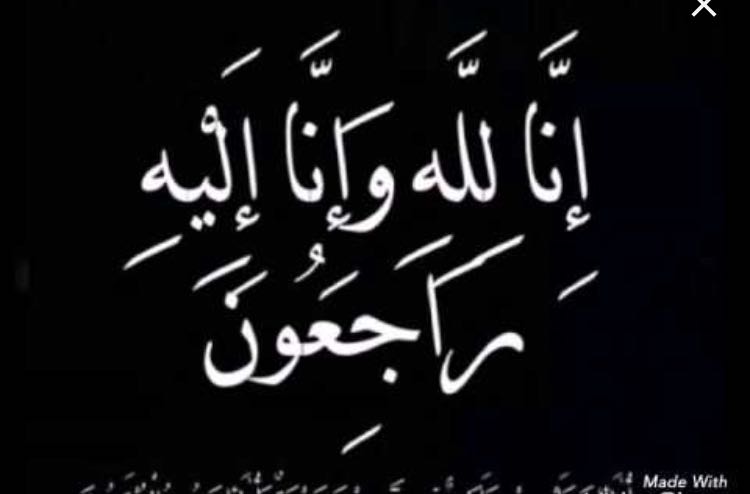 إِنَّا لِلَّهِ وَإِنَّا إِلَيْهِ
رَاجِعُونَ
Made With